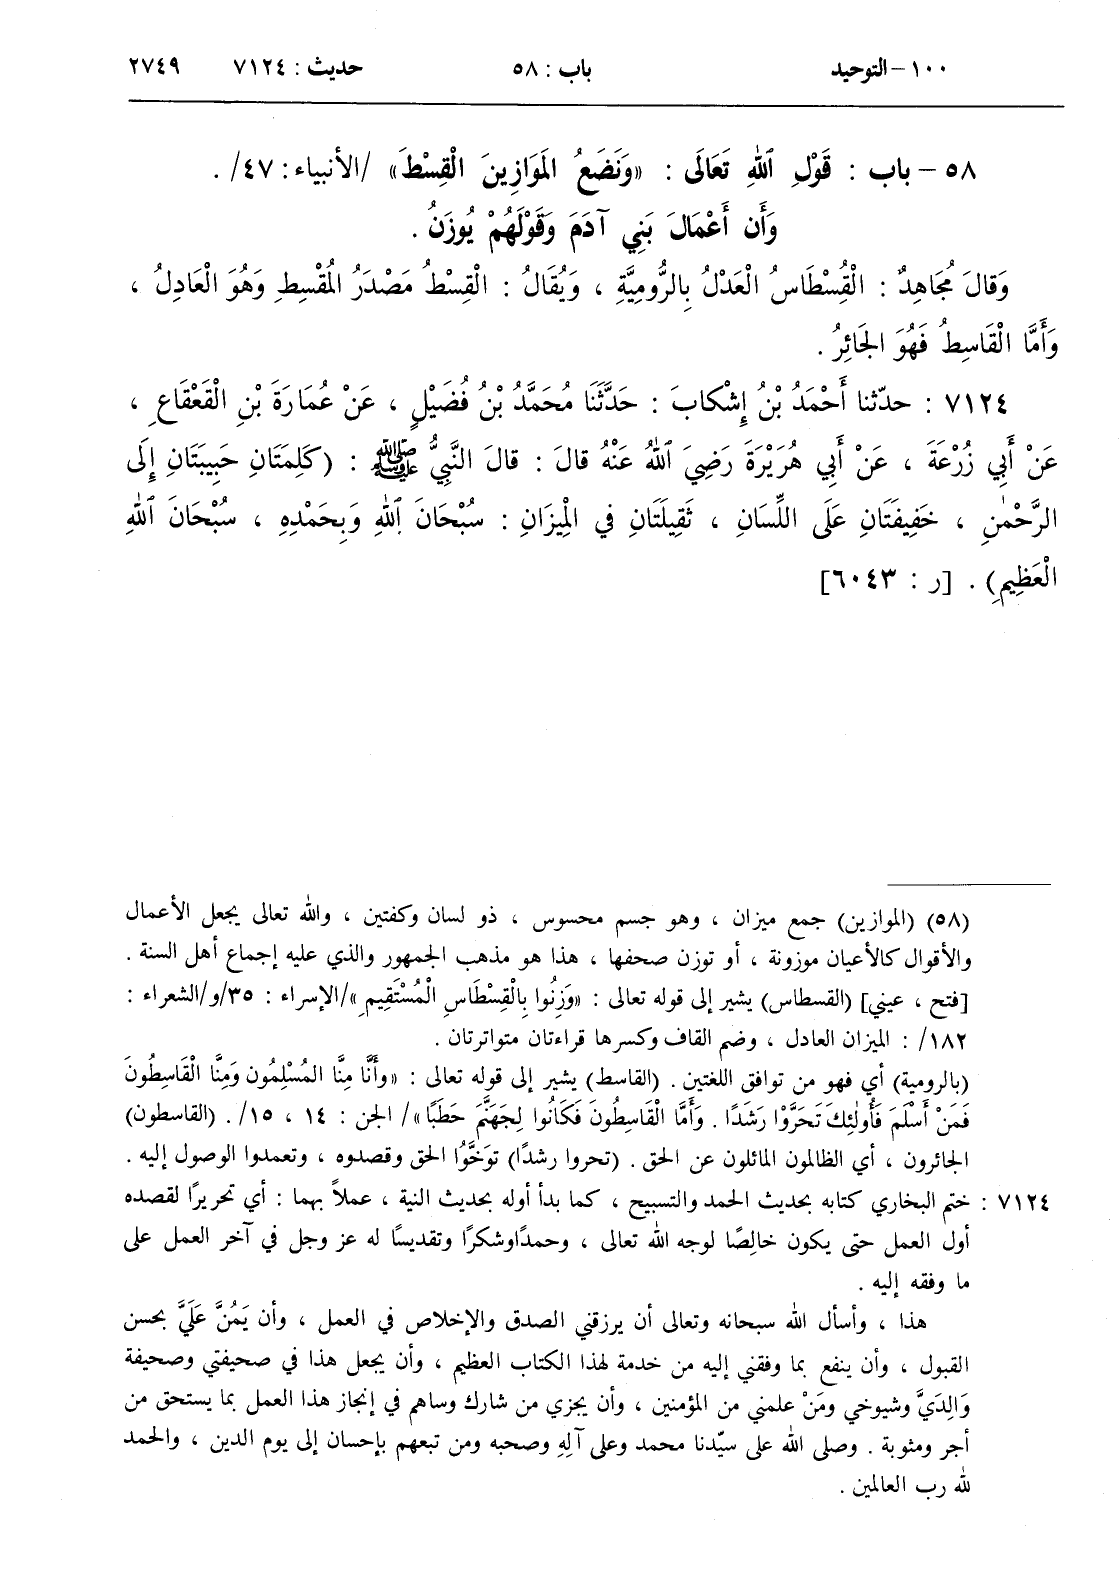 ١٠٠ – التوحيد باب : ٥٨ حديث : ٧١٢٤ ٢٧٤٩
٥٨ – باب : قَوْلِ ٱللهِ تَعَالَى : «وَنَضَعُ المَوَازِينَ الْقِسْطَ» /الأنبياء: ٤٧/ .
وَأَن أَعْمَالَ بَنِي آدَمَ وَقَوْلَهُمْ يُوزَنُ .
وَقالَ مُجَاهِدٌ : الْقُسْطَاسُ الْعَدْلُ بِالرُّومِيَّةِ ، وَيُقَالُ : الْقِسْطُ مَصْدَرُ المُقْسِطِ وَهُوَ الْعَادِلُ ،
وَأَمَّا الْقَاسِطُ فَهُوَ الجَائِرُ .
٧١٢٤ : حدّثنا أَحْمَدُ بْنُ إِشْكابَ : حَدَّثَنَا مُحَمَّدُ بْنُ فُضَيْلٍ ، عَنْ عُمَارَةَ بْنِ الْقَعْقَاعِ ،
عَنْ أَبِي زُرْعَةَ ، عَنْ أَبِي هُرَيْرَةَ رَضِيَ ٱللهُ عَنْهُ قالَ : قالَ النَّبِيُّ ﷺ : (كَلِمَتَانِ حَبِيبَتَانِ إِلَى
الرَّحْمٰنِ ، خَفِيفَتَانِ عَلَى اللِّسَانِ ، ثَقِيلَتَانِ في الْمِيزَانِ : سُبْحَانَ ٱللهِ وَبِحَمْدِهِ ، سُبْحَانَ ٱللهِ
الْعَظِيمِ) . [ر : ٦٠٤٣]
(٥٨) (الموازين) جمع ميزان ، وهو جسم محسوس ، ذو لسان وكفتين ، والله تعالى يجعل الأعمال
والأقوال كالأعيان موزونة ، أو توزن صحفها ، هذا هو مذهب الجمهور والذي عليه إجماع أهل السنة .
[فتح ، عيني] (القسطاس) يشير إلى قوله تعالى : «وَزِنُوا بِالْقِسْطَاسِ الْمُسْتَقِيمِ»/الإسراء : ٣٥/و/الشعراء :
١٨٢/ : الميزان العادل ، وضم القاف وكسرها قراءتان متواترتان .
(بالرومية) أي فهو من توافق اللغتين . (القاسط) يشير إلى قوله تعالى : «وأَنَّا مِنَّا المُسْلِمُون وَمِنَّا الْقَاسِطُونَ
فَمَنْ أَسْلَمَ فَأُولئِكَ تَحَرَّوْا رَشَدًا . وَأَمَّا الْقَاسِطُونَ فَكَانُوا لِجَهَنَّمَ حَطَبًا»/ الجن : ١٤ ، ١٥/. (القاسطون)
الجائرون ، أي الظالمون المائلون عن الحق . (تحروا رشدًا) توَخَّوُا الحق وقصدوه ، وتعمدوا الوصول إليه .
٧١٢٤ : ختم البخاري كتابه بحديث الحمد والتسبيح ، كما بدأ أوله بحديث النية ، عملاً بهما : أي تحريرًا لقصده
أول العمل حتى يكون خالِصًا لوجه الله تعالى ، وحمدًاوشكرًا وتقديسًا له عز وجل في آخر العمل على
ما وفقه إليه .
هذا ، وأسأل الله سبحانه وتعالى أن يرزقني الصدق والإخلاص في العمل ، وأن يَمُنَّ عَلَيَّ بحسن
القبول ، وأن ينفع بما وفقني إليه من خدمة لهذا الكتاب العظيم ، وأن يجعل هذا في صحيفتي وصحيفة
وَالِدَيَّ وشيوخي ومَنْ علمني من المؤمنين ، وأن يجزي من شارك وساهم في إنجاز هذا العمل بما يستحق من
أجر ومثوبة . وصلى الله على سيّدنا محمد وعلى آلِهِ وصحبه ومن تبعهم بإحسان إلى يوم الدين ، والحمد
لله رب العالمين .